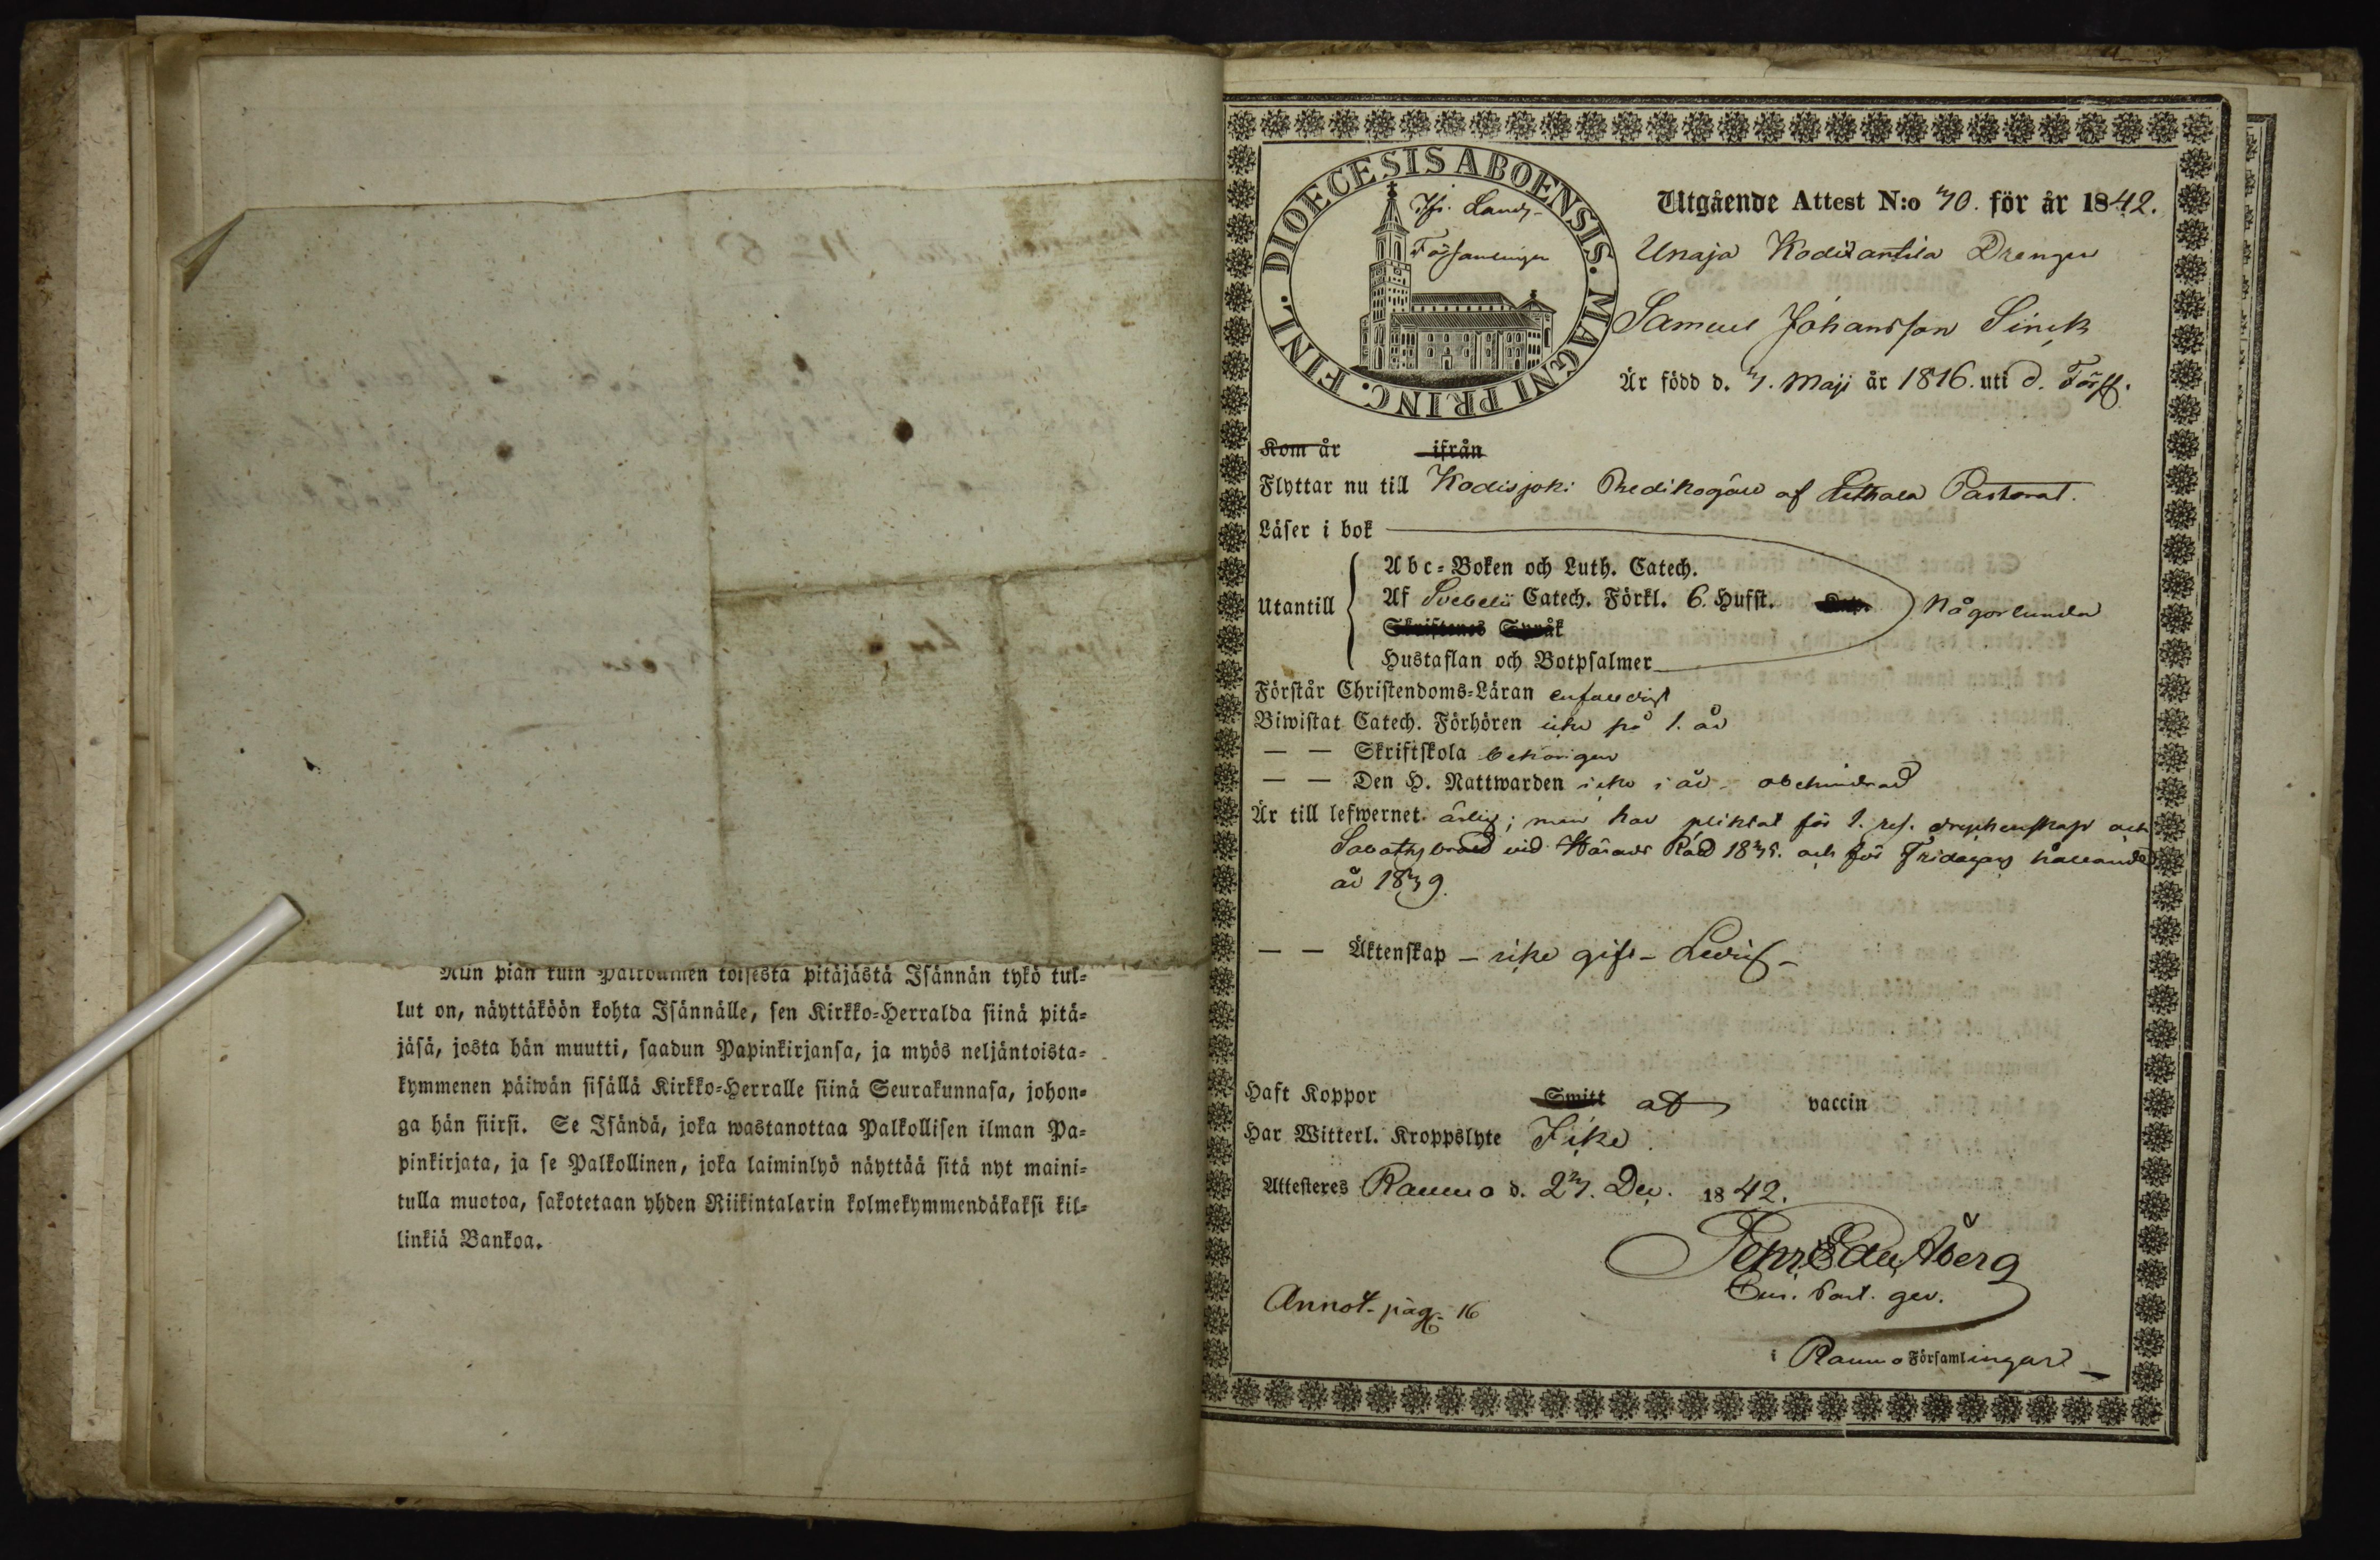 Niin pian kuin Palkollinen toisesta pitäjästä Isännän tykö tul-
lut on, näyttäköön kohta Isännälle, sen Kirkko-Herralda siinä pitä-
jäsä, josta hän muutti, saadun Papinkirjansa, ja myös neljäntoista-
kymmenen päiwän sisällä Kirkko-Herralle siinä Seurakunnasa, johon-
ga hän siirsi. Se Isändä, joka wastanottaa Palkollisen ilman Pa-
pinkirjata, ja se Palkollinen, joka laiminlyö näyttää sitä nyt maini-
tulla muotoa, sakotetaan yhden Riikintalarin kolmekymmendäkaksi kil-
linkiä Bankoa.
DIOECESIS ABOENSIS. MAGNI PRINC. FINL.
Ifr. Lands-
Församlingen
Utgående Attest N:o 70. för år 1842.
Unaja Kodisantila Drengen
Samuel Johansson Sinck
Är född d. 7. Maji år 1816. uti d. Förs.
Kom år ifrån
Flyttar nu till Kodisjoki Predikogäll af Letthala Pastorat.
Läser i bok
Utantill
Abc-Boken och Luth. Catech.
Af Svebelii Catech. Förkl. 6. Hufst.
Skriftenes Språk
Hustaflan och Botpsalmer
Någorlunda
Förstår Christendoms-Läran enfaldigt
Biwistat Catech. Förhören icke på 1. år
— — Skriftskola behörigen
— — Den H. Nattwarden icke i år - obehindrad
Är till lefwernet ärlig; men har pliktat för 1. res. dryckenskap och
Sabathsbrott vid Härads Rätt 1835. och för Fridagars hållande
år 1839.
— — Äktenskap - icke gift - Ledig -
Haft Koppor Smitt af vaccin
Har Witterl. Kroppslyte Icke.
Attesteres Raumo d. 27. Dec. 1842.
Pehr Edv. Åberg
Annot. pag. 16
i Raumo Församlingar